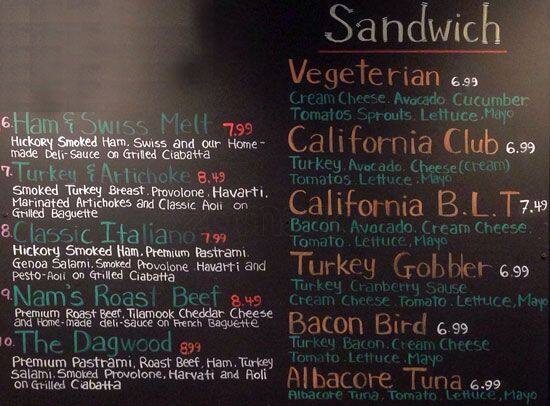 6. Ham & Swiss Melt 7.99
Hickory Smoked Ham, Swiss and our Home-
made Deli-Sauce on Grilled Ciabatta
7. Turkey & Artichoke 8.49
Smoked Turkey Breast, Provolone, Havarti,
Marinated Artichokes and Classic Aoli on
Grilled Baguette
8. Classic Italiano 7.99
Hickory Smoked Ham, Premium Pastrami,
Genoa Salami, Smoked Provolone, Havarti and
Pesto-Aoli on Grilled Ciabatta
9. Nam's Roast Beef 8.49
Premium Roast Beef, Tilamook Cheddar Cheese
and Home-made deli-Sauce on French Baguette
10. The Dagwood 899
Premium Pastrami, Roast Beef, Ham, Turkey
Salami, Smoked Provolone, Harvati and Aoli
on Grilled Ciabatta
Sandwich
Vegeterian 6.99
Cream Cheese, Avocado, Cucumber
Tomatos Sprouts, Lettuce, Mayo
California Club 6.99
Turkey, Avocado, Cheese (cream)
Tomatos, Lettuce, Mayo
California B.L.T 7.49
Bacon, Avocado, Cream Cheese,
Tomato, Lettuce, Mayo
Turkey Gobbler 6.99
Turkey Cranberry Sause
Cream Cheese, Tomato, Lettuce, Mayo
Bacon Bird 6.99
Turkey Bacon, Cream Cheese
Tomato, Lettuce, Mayo
Albacore Tuna 6.99
Albacore Tuna, Tomato, Lettuce, Mayo